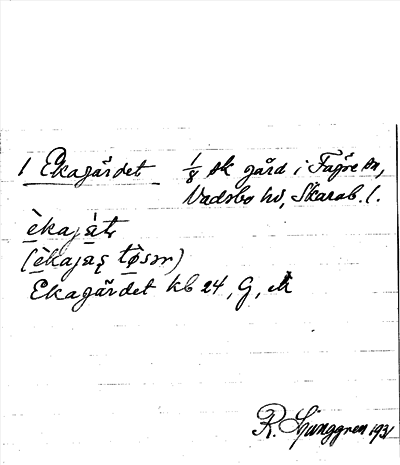 1 Ekagärdet 1/8 sk gård i Fägre sn,
Vadsbo hd, Skarab. l.
èkajàtɩ
(èkajaʂ tø̀sər)
Ekagärdet kb 24, G, ek
R. Ljunggren 1931